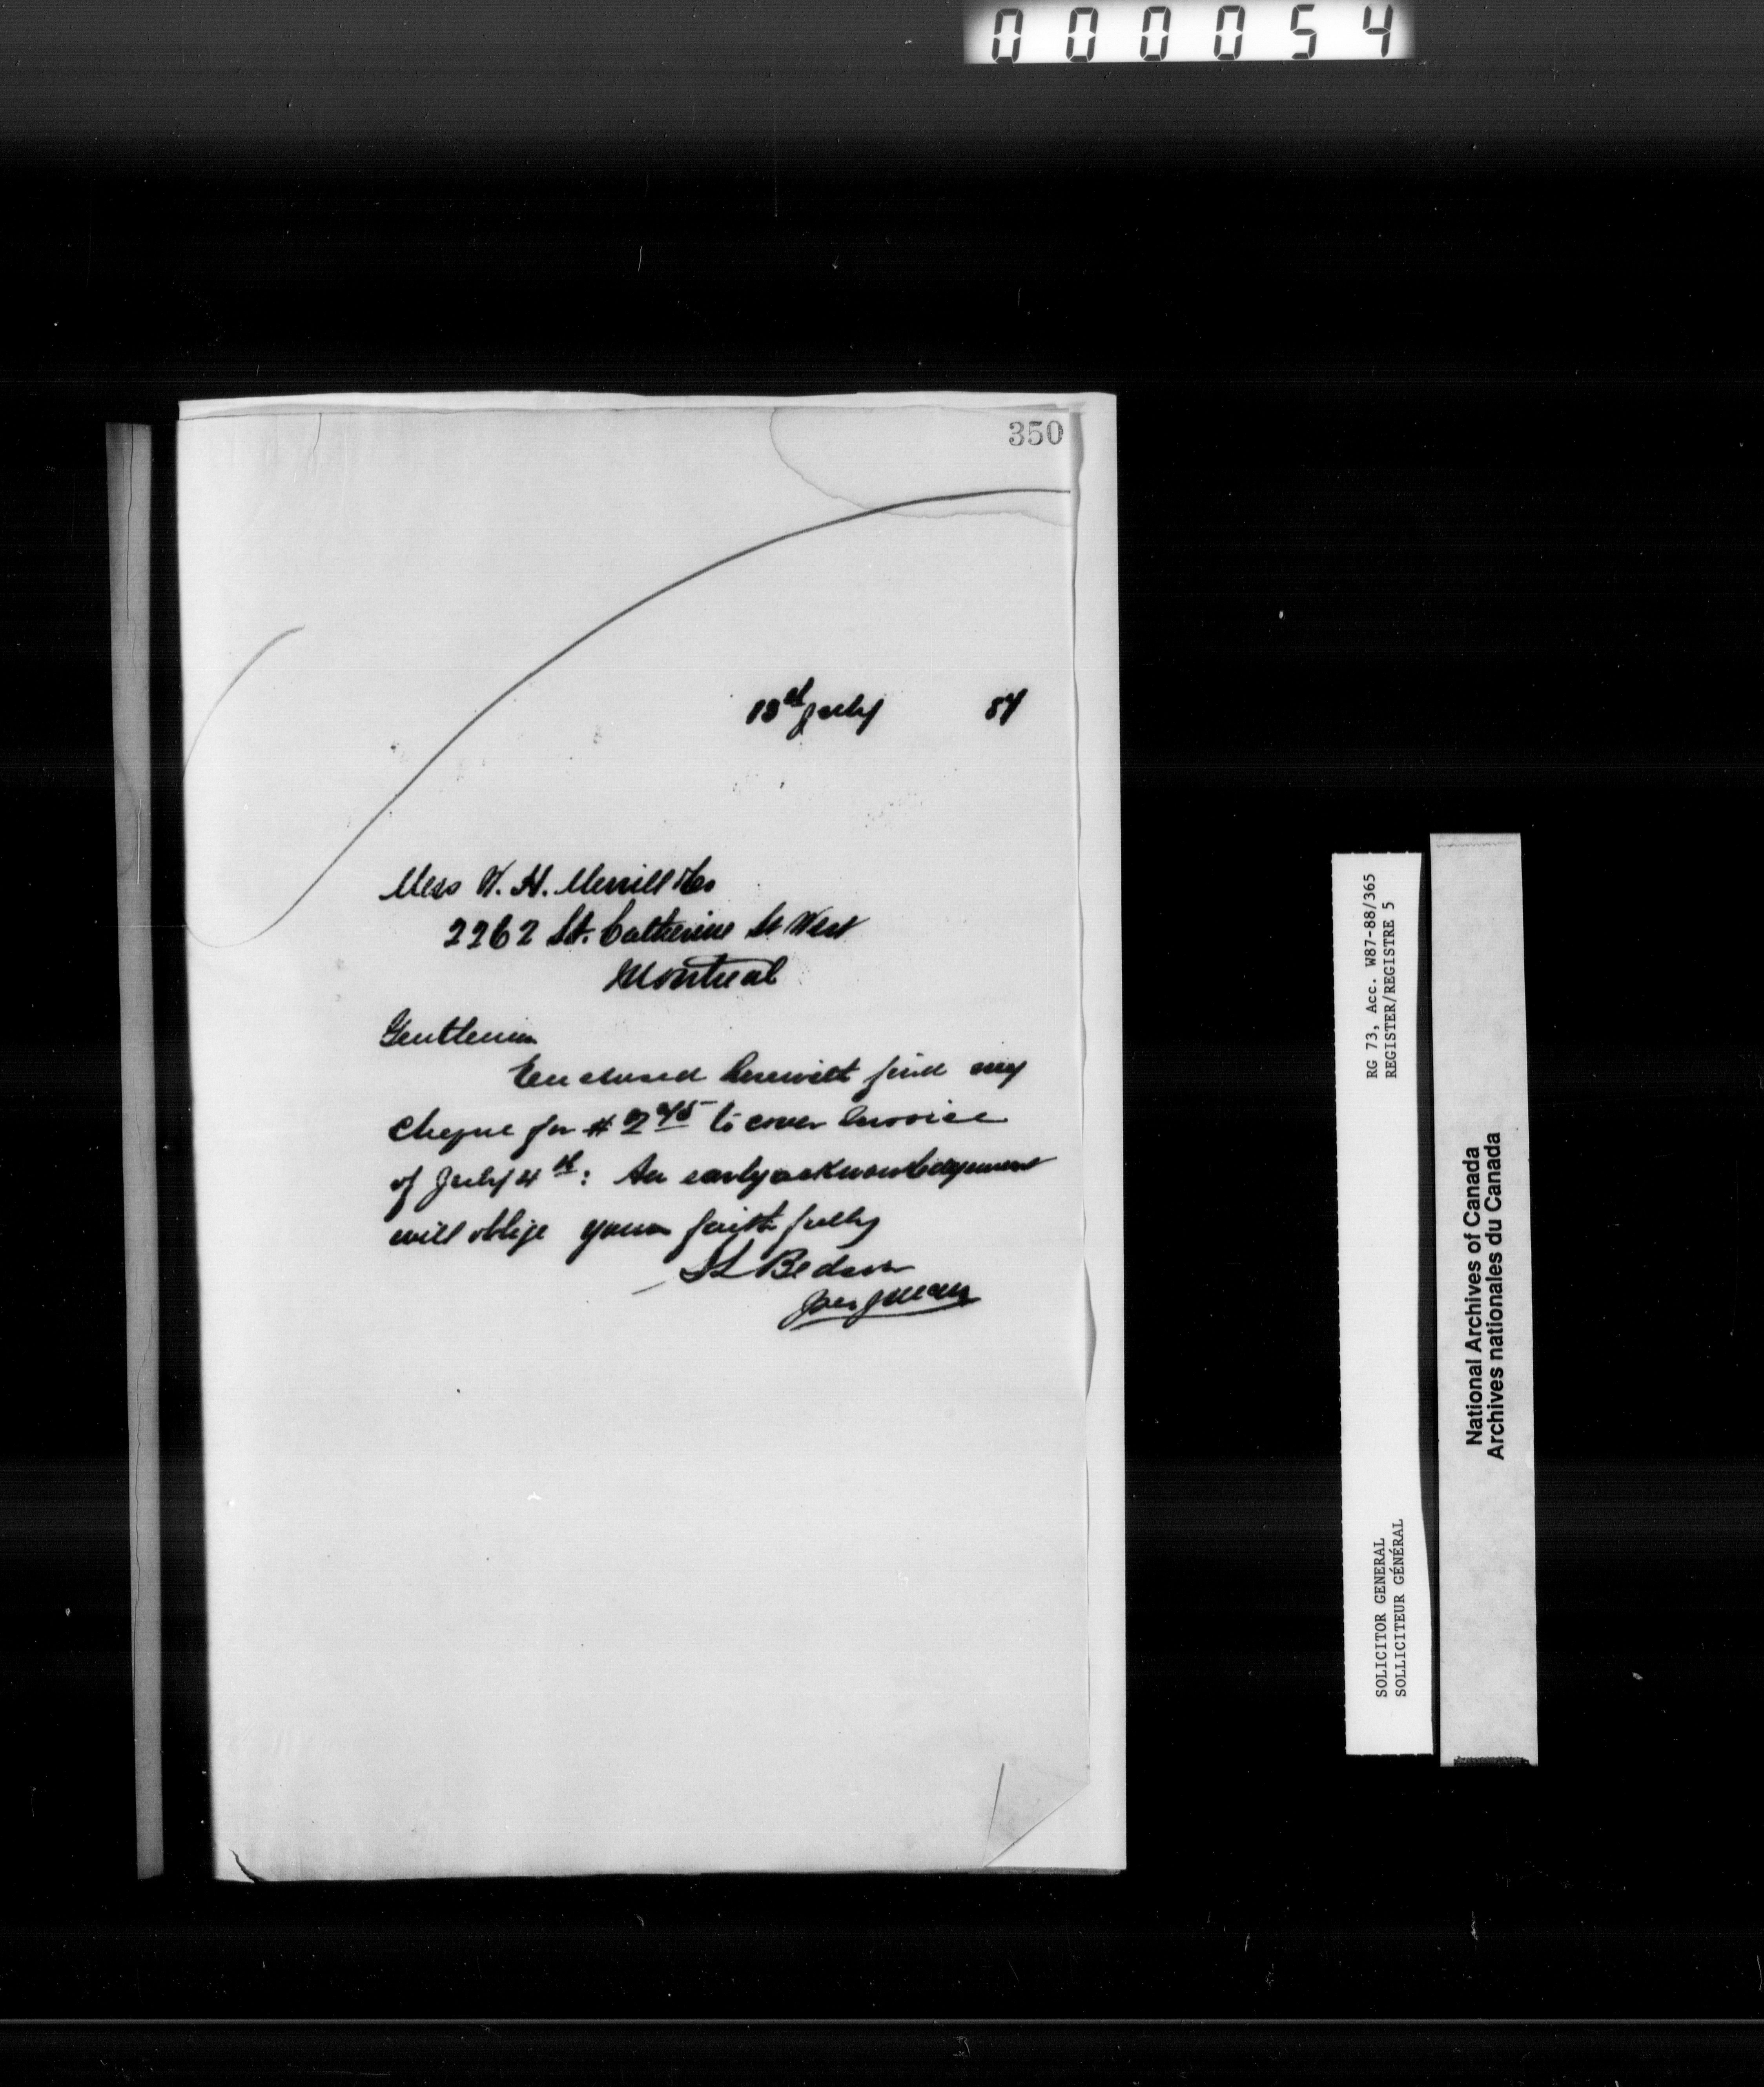 000054
350
13th July 87
Mess W. H. Merrill & Co
2262 St. Catherine St West
Montreal
Gentlemen
Enclosed herewith find my
cheque for $2 45 to cover Invoice
of July 4th: An early acknowledgement
will oblige yours faithfully
SL Bedson
RG 73, Acc. W87-88/365
REGISTER/REGISTRE 5
SOLICITOR GENERAL
SOLLICITEUR GÉNÉRAL
National Archives of Canada
Archives nationales du Canada